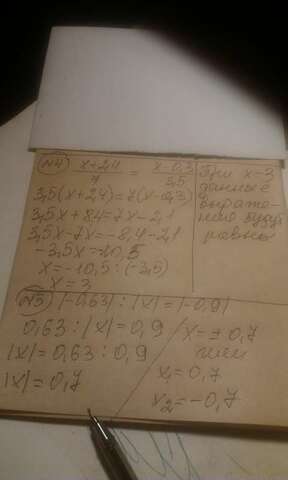 №4 x+2,4 / 7 = x-0,3 / 3,5
3,5(x+2,4)=7(x-0,3)
3,5x+8,4=7x-2,1
3,5x-7x=-8,4-2,1
-3,5x=-10,5
x=-10,5:(-3,5)
x=3
При x=3
данные
выраже-
ния будут
равны
№5 |-0,63|:|x|=|-0,9|
0,63:|x|=0,9
|x|=0,63:0,9
|x|=0,7
x=±0,7
или
x₁=0,7
x₂=-0,7